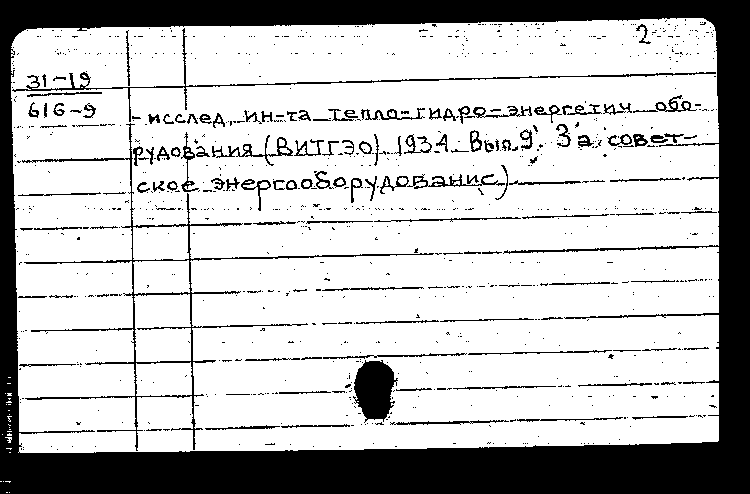 2
31-19
616-9
-исслед. ин-та тепло-гидро-энергетич. обо-
рудования (ВИТГЭО). 1934. Вып. 9. За совет-
ское энергооборудование)